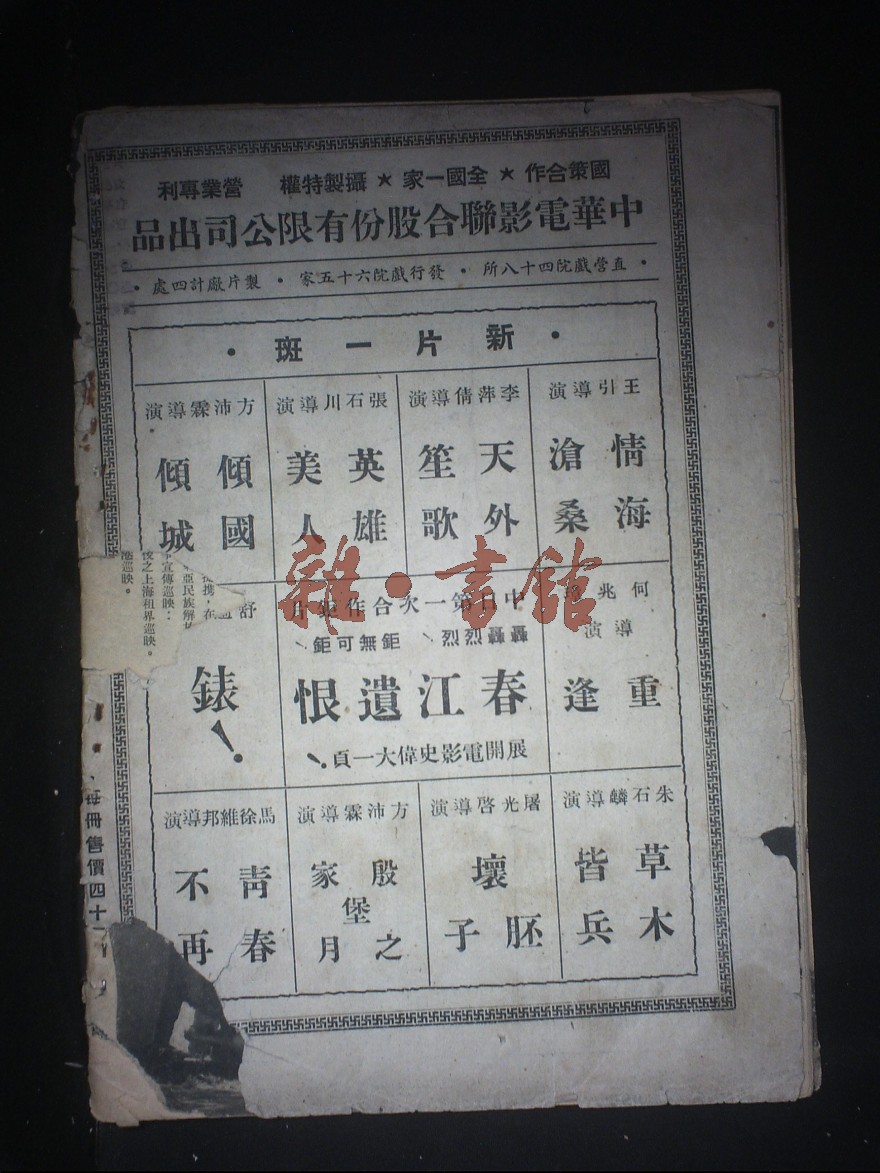 國策合作★全國一家★攝製特權 營業專利
中華電影聯合股份有限公司出品
·直營戲院四十八所·發行戲院六十五家·製片廠計四處·
·新片一斑·
王引導演
情海
滄桑
李萍倩導演
天外
笙歌
張石川導演
英雄
美人
方沛霖導演
傾國
傾城
何兆璋
導演
重逢
中日第一次合作
轟轟烈烈!
鉅無可鉅!
春江遺恨
展開電影史偉大一頁!
舒
錶!
朱石麟導演
草木
皆兵
屠光啓導演
壞胚子
方沛霖導演
殷家堡之月
馬徐維邦導演
青春
不再
攜,在
亞民族解
宣傳巡映:
後之上海租界巡映。
巡映。
每冊售價四十
雜·書館